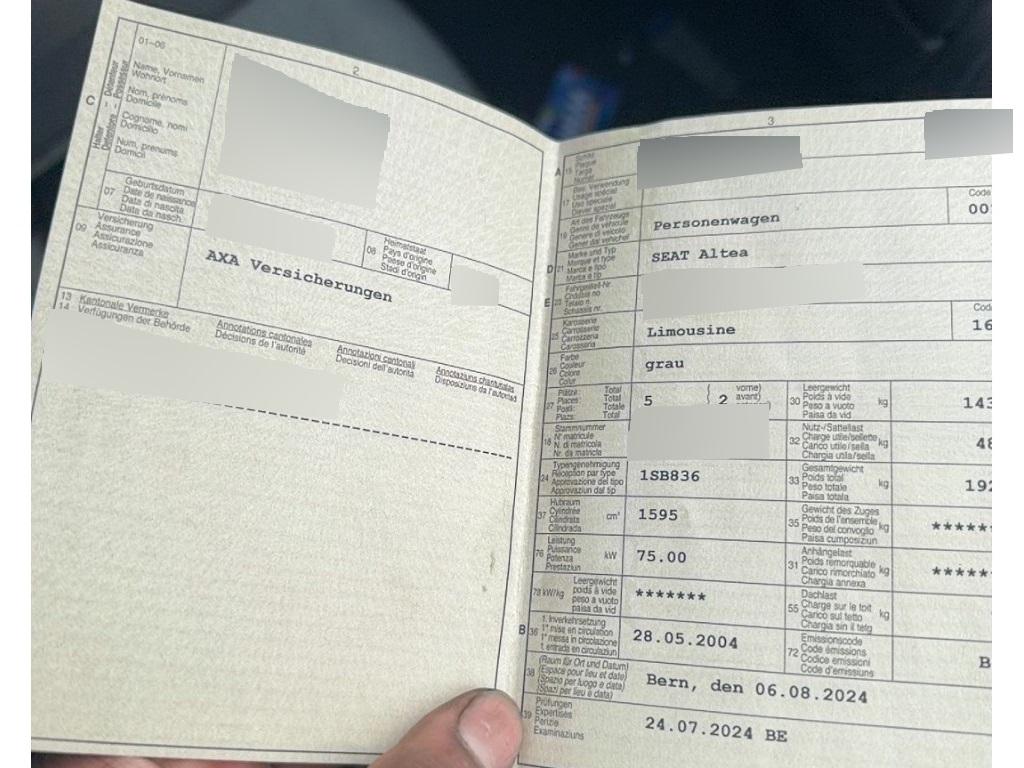 2
01-06
Name, Vornamen
Wohnort
Nom, prénoms
Domicile
Cognome, nomi
Domicilio
Num, prenums
Domicil
C
Halter
Détenteur
Detentore
Possessur
07
Geburtsdatum
Date de naissance
Data di nascita
Data da nasch.
08
Heimatstaat
Pays d'origine
Paese d'origine
Stadi d'origin
09
Versicherung
Assurance
Assicurazione
Assicuranza
AXA Versicherungen
13 Kantonale Vermerke
14 Verfügungen der Behörde
Annotations cantonales
Décisions de l'autorité
Annotazioni cantonali
Decisioni dell'autorità
Annotaziuns chantunalas
Disposiziuns da l'autoritad
3
A 15
Schild
Plaque
Targa
Numer
17
Bes. Verwendung
Usage spécial
Uso speciale
Diever spezial
19
Art des Fahrzeugs
Genre de véhicule
Genere di veicolo
Gener dal vehichel
Personenwagen
Code
D 21
Marke und Typ
Marque et type
Marca e tipo
Marca e tip
SEAT Altea
E 23
Fahrgestell-Nr.
Châssis no
Telaio n.
Schassis nr.
25
Karosserie
Carrosserie
Carrozzeria
Carossaria
Limousine
16
26
Farbe
Couleur
Colore
Colur
grau
27
Plätze: Total
Places: Total
Posti: Totale
Plazs: Total
5
( 2
vorne)
avant)
30
Leergewicht
Poids à vide
Peso a vuoto
Paisa da vid
kg
143
18
Stammnummer
N° matricule
N. di matricola
Nr. da matricla
32
Nutz-/Sattellast
Charge utile/sellette
Carico utile/sella
Chargia utila/sella
kg
48
24
Typengenehmigung
Réception par type
Approvazione del tipo
Approvaziun dal tip
1SB836
33
Gesamtgewicht
Poids total
Peso totale
Paisa totala
kg
192
37
Hubraum
Cylindrée
Cilindrata
Cilindrada
cm³
1595
35
Gewicht des Zuges
Poids de l'ensemble
Peso del convoglio
Paisa cumposiziun
kg
*****
76
Leistung
Puissance
Potenza
Prestaziun
kW
75.00
31
Anhängelast
Poids remorquable
Carico rimorchiato
Chargia annexa
kg
*****
78 kW/kg
Leergewicht
poids à vide
peso a vuoto
paisa da vid
*******
55
Dachlast
Charge sur le toit
Carico sul tetto
Chargia sin il tetg
kg
B 36
1. Inverkehrsetzung
1re mise en circulation
1a messa in circolazione
1. entrada en circulaziun
28.05.2004
72
Emissionscode
Code émissions
Codice emissioni
Code d'emissiuns
B
38
(Raum für Ort und Datum)
(Espace pour lieu et date)
(Spazio per luogo e data)
(Spazi per lieu e data)
Bern, den 06.08.2024
39
Prüfungen
Expertises
Perizie
Examinaziuns
24.07.2024 BE